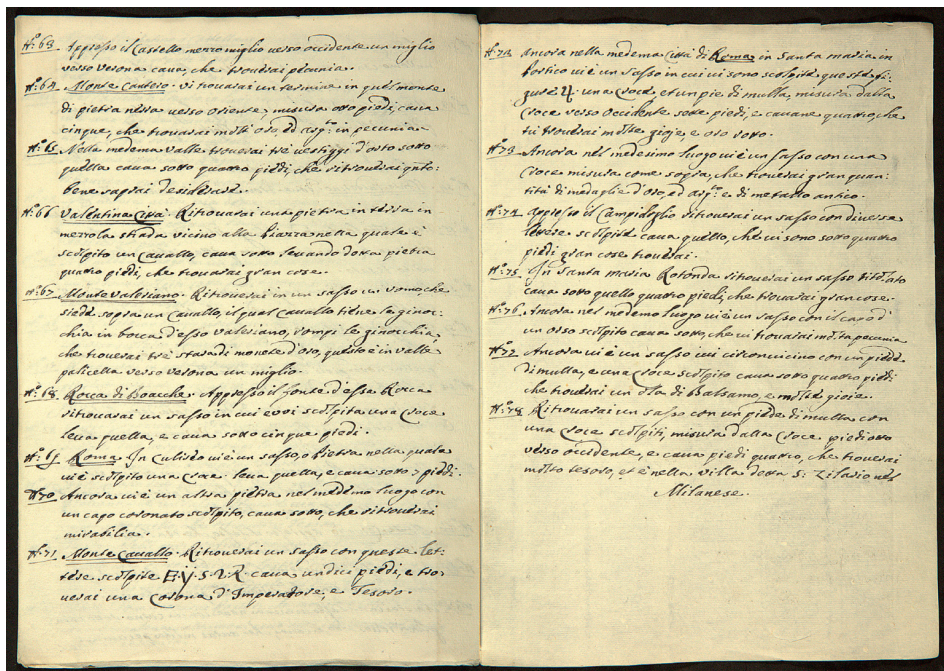 N.° 63. Appresso il Castello mezzo miglio verso occidente un miglio
verso Verona caua, che trouarai pecunia.
N.° 64. Monte Cautero. Vi trouarai un termine in quel monte
di pietra nera verso oriente, misura otto piedi, caua
cinque, che trouarai molti oro, ed arg.to in pecunia
N.° 65. Nella medema valle trouerai trè vestiggi d'orto sotto
quella caua sotto quattro piedi, che ritrouarai q.nto
bene saprai desiderare.
N.° 66. Valentina Città. Ritrouarai una pietra in terra in
mezzola strada vicino alla Piazza nella quale è
scolpito un Cauallo, caua sotto leuando dotta pietra
quatro piedi, che trouarai gran cose.
N.° 67. Monte Valesiano. Ritrouerai in un sasso un vomo, che
siede sopra un Cauallo, il qual cauallo tiene le ginoc-
chia in bocca d'esso Valesiano, rompi le ginocchia,
che trouerai trè stara di monete d'oro, questo è in valle
palicella verso verona un miglio.
N.° 68. Rocca di Boacche. Appresso il fonte d'essa Rocca
ritrouarai un sasso in cui euoi scolpita una Croce
leua quella, e caua sotto cinque piedi.
N.° 69. Roma. In Culiseo uiè un sasso, o Pietra nella quale
uiè scolpito una Croce leua quella, e caua sotto 7 piedi.
N.° 70. Ancora uiè un altra pietra nel medemo luogo con
un capo coronato scolpito, caua sotto, che ritrouarai
mirabilia.
N.° 71. Monte Cauallo. Ritrouerai un sasso con queste let-
tere scolpite E. V. S. 2. R. caua undici piedi, e tro-
uerai una Corona d'Imperatore, e Tesoro.
N.° 72. Ancora nella medema Città di Roma in Santa Maria in
Portico uiè un sasso in cui vi sono scolpite queste fi-
gure 4. una Croce, et un pie di mulla, misura dalla
Croce verso Occidente sette piedi, e cauane quatro, che
tu trouarai molte gioje, e oro sotto.
N.° 73. Ancora nel medesimo luogo uiè un sasso con una
Croce misura come sopra, che trouerai gran quan-
tità di medaglie d'oro, ed arg.to e di metallo antico.
N.° 74. Appresso il Campidoglio ritrouerai un sasso con diuerse
lettere scolpite caua quello, che ui sono sotto quattro
piedi gran cose trouerai.
N.° 75. In Santa Maria Rotonda ritrouerai un sasso titolato
caua sotto quello quattro piedi, che trouarai gran cose.
N.° 76. Ancora nel medemo luogo uiè un sasso con il capo d'
un orso scolpito caua sotto, che ui trouarai molta pecunia
N.° 77. Ancora ui è un sasso iui circonuicino con un piede
di mulla, e una Croce scolpito caua sotto quattro piedi
che trouarai un Olla di Balsamo, e molte gioie.
N.° 78. Ritrouarai un sasso con un piede di mulla con
una Croce scolpiti, misura dalla Croce piedi otto
verso occidente, e caua piedi quatro, che trouerai
molto tesoro, et è nella villa detta S. Zilario nel
Milanese.